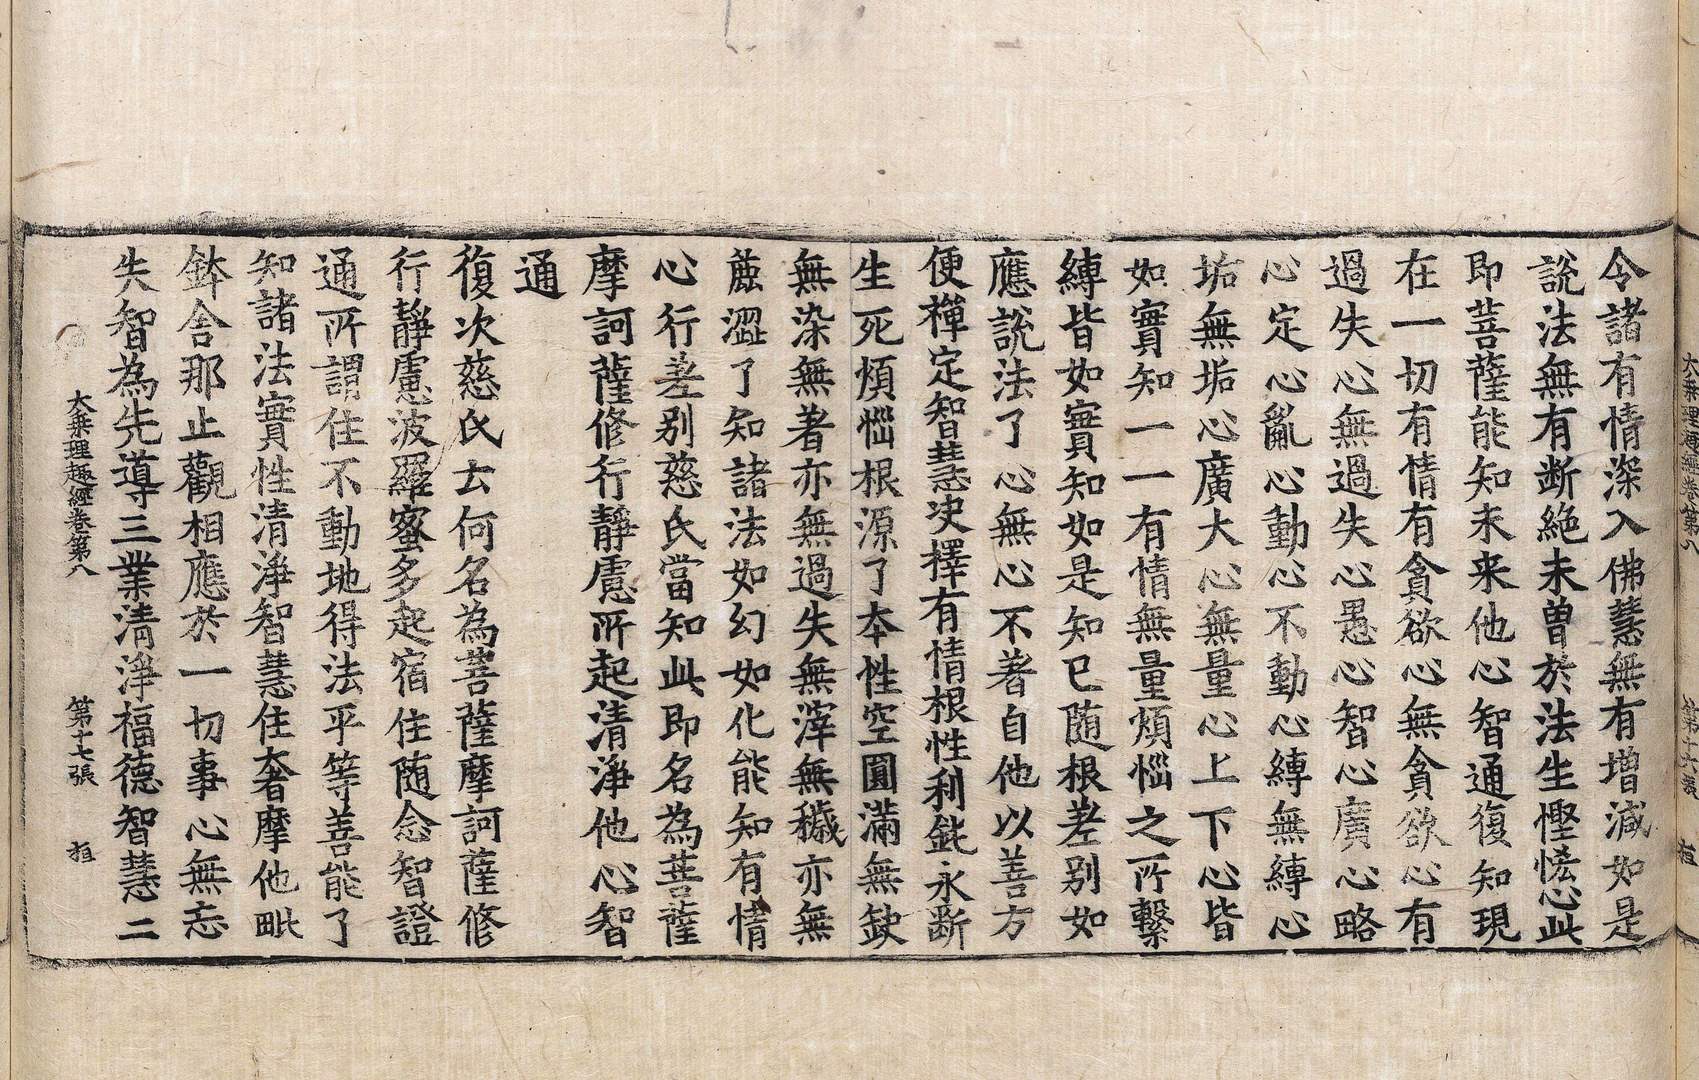 大乗理趣經卷第八 第十六張 桓
令諸有情深入佛慧無有增減如是
說法無有断絶未曽於法生慳悋心此
即菩薩能知未来他心智通復知現
在一切有情有貪欲心無貪欲心有
過失心無過失心愚心智心廣心略
心定心亂心動心不動心縛無縛心
垢無垢心廣大心無量心上下心皆
如實知一一有情無量煩惱之所繫
縛皆如實知如是知已随根差别如
應說法了心無心不著自他以善方
便禪定智慧决擇有情根性利鈍永斷
生死煩惱根源了本性空圓滿無缺
無染無著亦無過失無滓無穢亦無
麁澀了知諸法如幻如化能知有情
心行差别慈氏當知此即名為菩薩
摩訶薩修行靜慮所起清淨他心智
通
復次慈氏云何名為菩薩摩訶薩修
行靜慮波羅蜜多起宿住随念智證
通所謂住不動地得法平等善能了
知諸法實性清淨智慧住奢摩他毗
鉢舍那止觀相應於一切事心無忘
失智為先導三業清淨福德智慧二
大乗理趣經卷第八 第十七張 桓